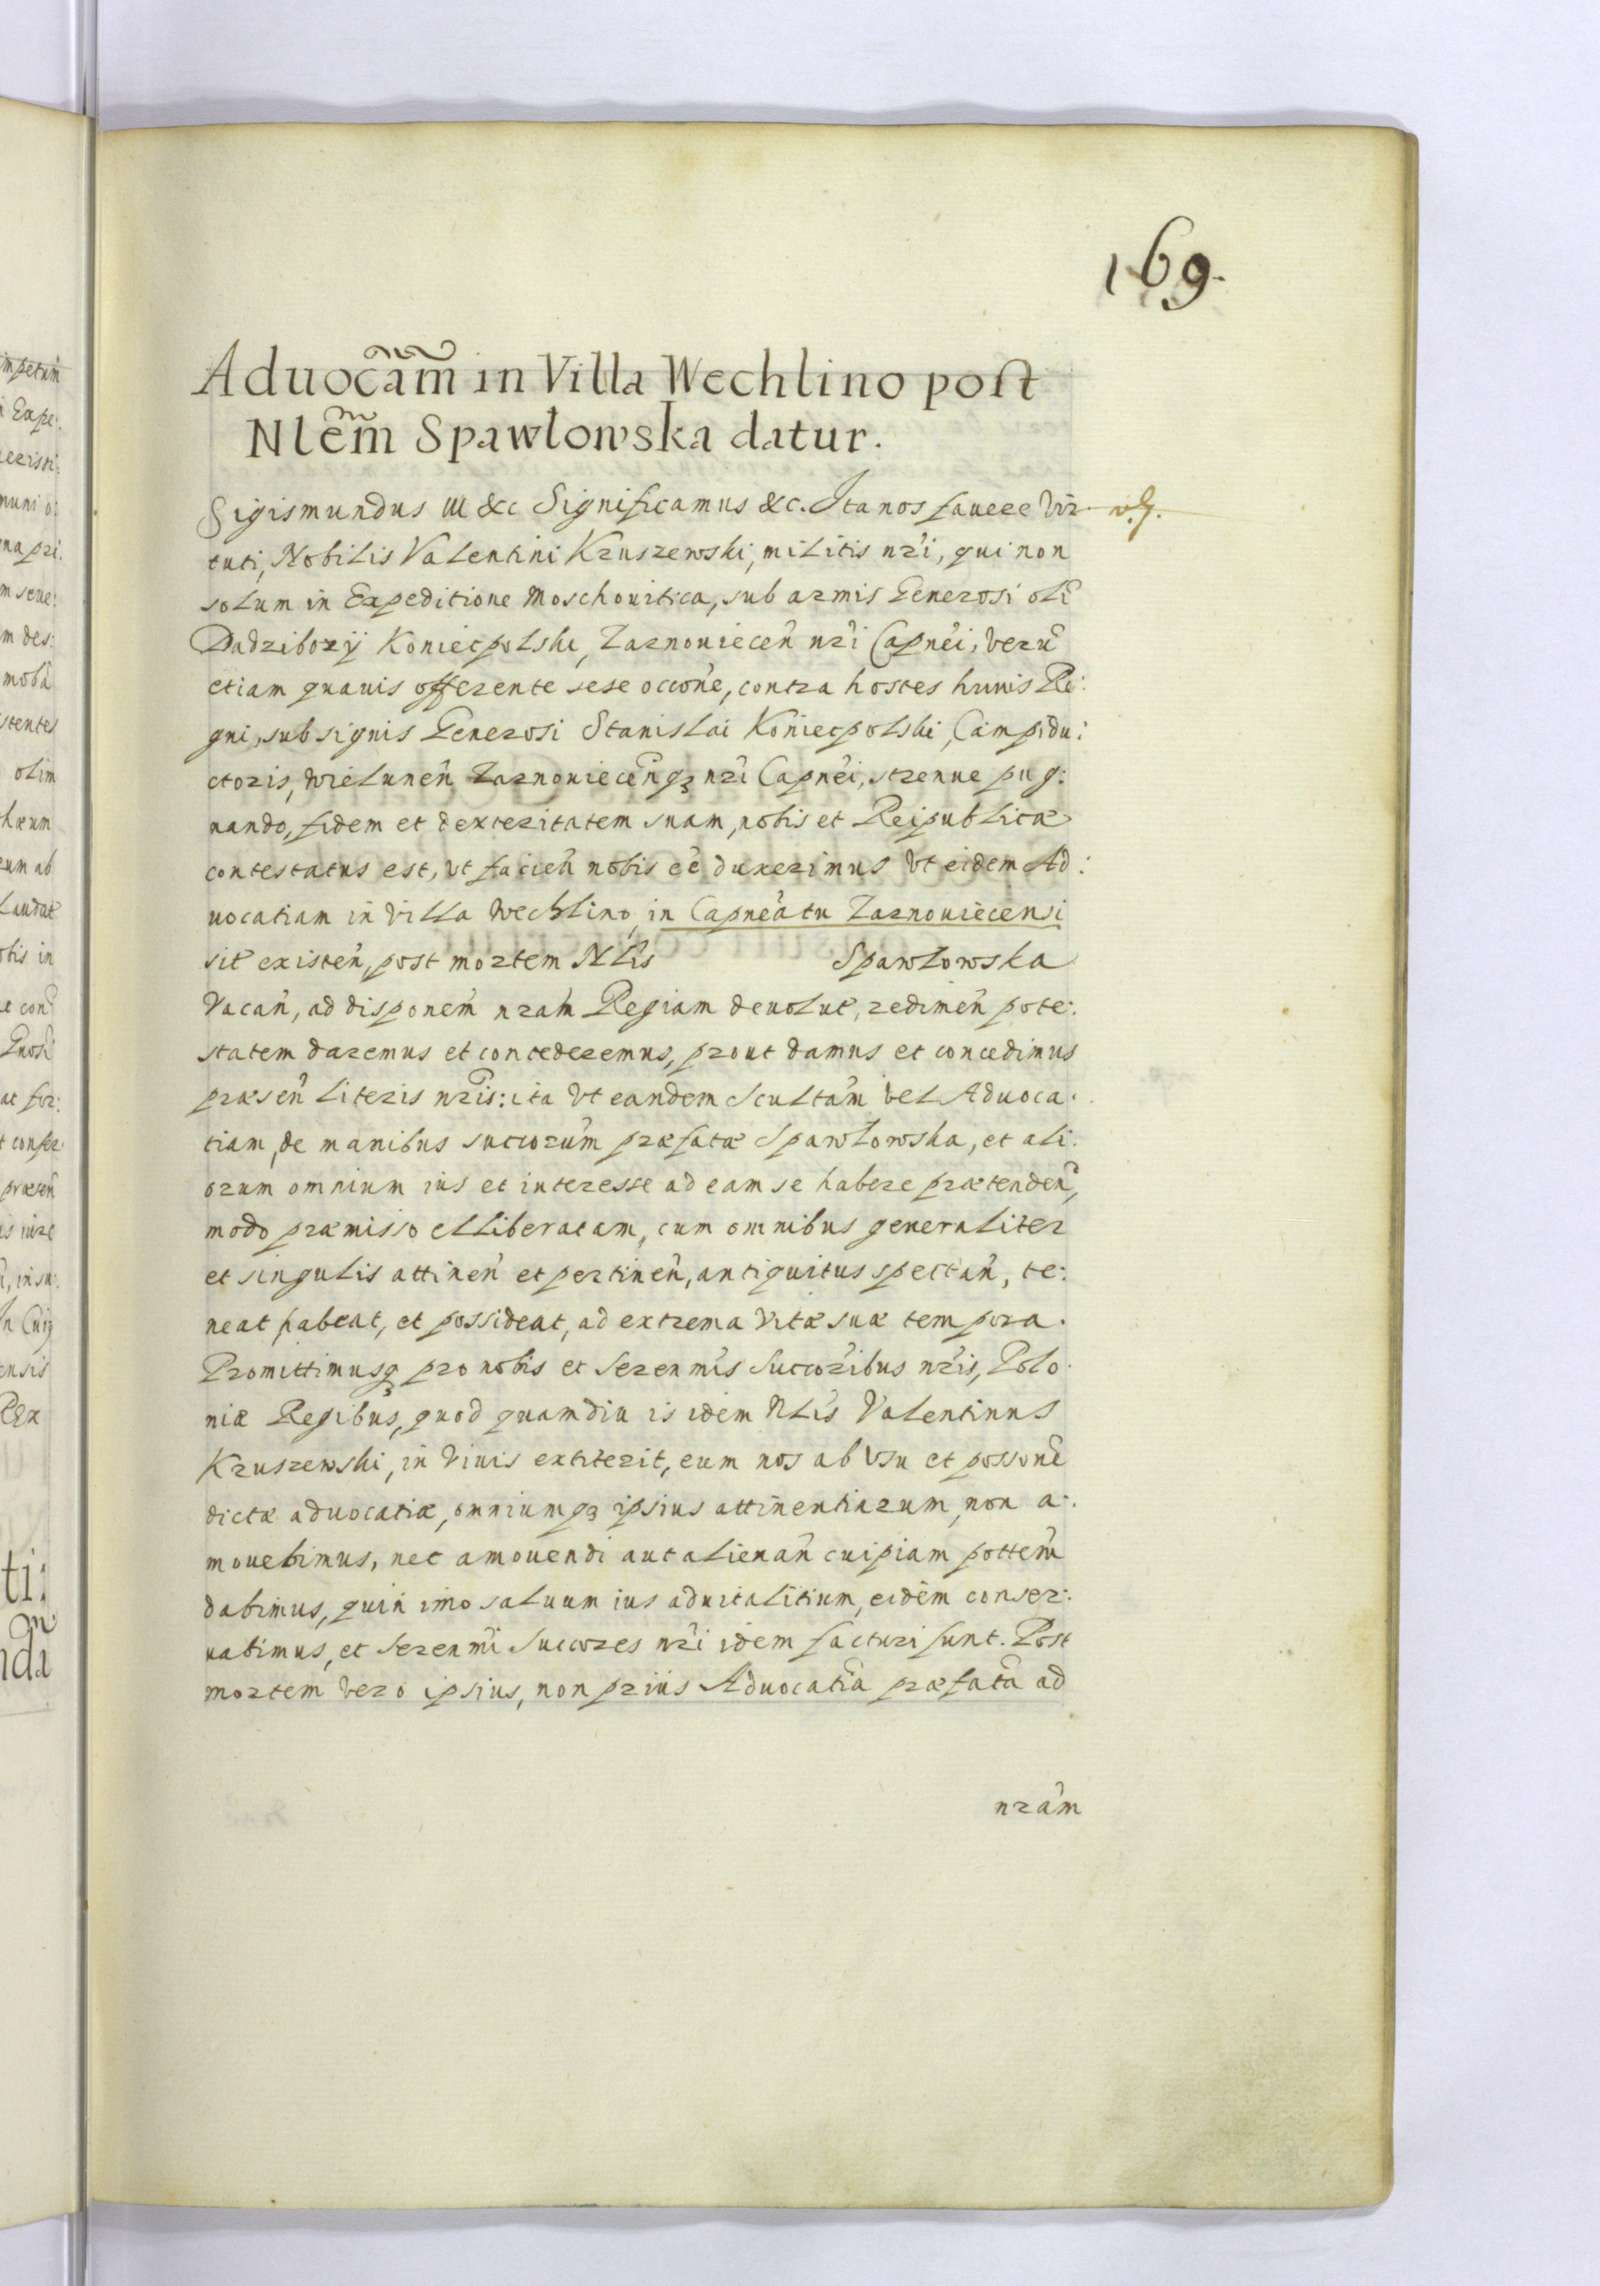 169.
Aduocãm in Villa Wechlino post
Nlem̃ Spawłowska datur.
Sigismundus III &c Significamus &c. Ita nos fauere Vir-
tuti, Nobilis Valentini Kruszewski, militis nr̃i, qui non
solum in Expeditione Moschouitica, sub armis Generosi olĩ
Dadzibozÿ Koniecpolski, Zarnouiecen̄ nr̃i Capn̄ei, verũ
etiam quauis offerente sese occõne, contra hostes huius Re:
gni, sub signis Generosi Stanislai Koniecpolski, Campidu:
ctoris, wielunen̄ Zarnouiecen̄qꝫ nr̃i Capn̄ei, strenue pug:
nando, fidem et dexteritatem suam, nobis et Reipublicæ
contestatus est, vt facien̄ nobis eẽ duxerimus vt eidem Ad:
uocatiam in villa Wechlino, in Capneatu Zarnouiecensi
sit̃ existen̄, post mortem Nlis Spawłowska
Vacan̄, ad disponem̃ nrãm Regiam deuolut̃, redimen̄ pote:
statem daremus et concederemus, prout damus et concedimus
præsen̄ literis nr̃is: ita Vt eandem Scultãm vel Aduoca.
tiam, de manibus succorũm præfatæ Spawłowska, et ali.
orum omnium ius et interesse ad eam se habere prætenden̄,
modo præmisso elliberatam, cum omnibus generaliter
et singulis attinen̄ et pertinen̄, antiquitus spectan̄, te:
neat, habeat, et possideat, ad extrema vitæ suæ tempora.
Promittimusqꝫ pro nobis et Serenmis Succoribus nr̃is, Polo.
niæ Regibus, quod quamdiu is idem Nlis Valentinus
Kruszewski, in viuis extiterit, eum nos ab vsu et possonẽ
dictæ aduocatiæ, omniumqꝫ ipsius attinentiarum, non a:
mouebimus, nec amouendi aut alienan̄ cuipiam pottem̃
dabimus, quin imo saluum ius aduitalitium, eidem conser:
uabimus, et Serenmi Succores nr̃i idem facturi sunt. Post
mortem vero ipsius, non prius Aduocatiã præfatã ad
nrãm